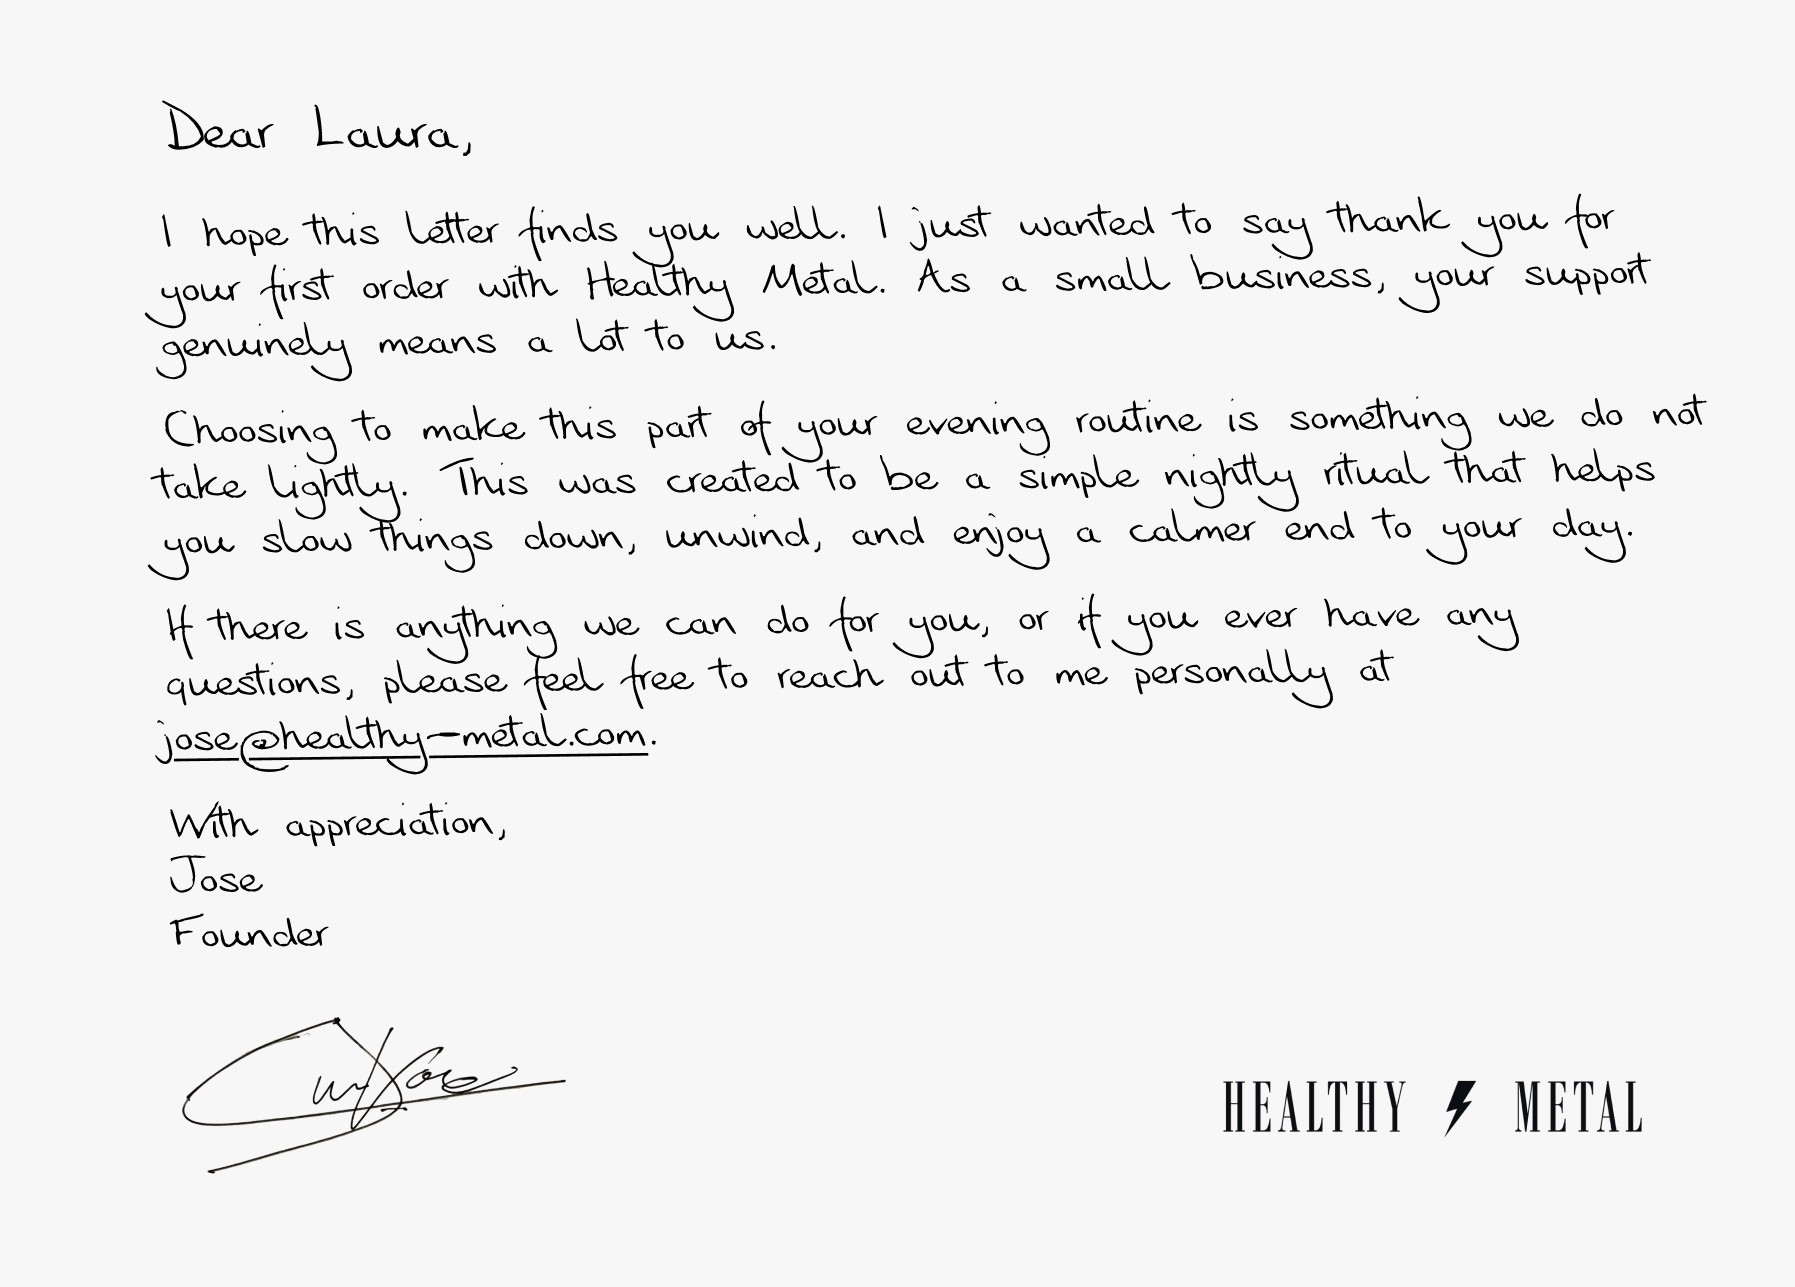 Dear Laura,
I hope this letter finds you well. I just wanted to say thank you for
your first order with Healthy Metal. As a small business, your support
genuinely means a lot to us.
Choosing to make this part of your evening routine is something we do not
take lightly. This was created to be a simple nightly ritual that helps
you slow things down, unwind, and enjoy a calmer end to your day.
If there is anything we can do for you, or if you ever have any
questions, please feel free to reach out to me personally at
jose@healthy-metal.com.
With appreciation,
Jose
Founder
HEALTHY METAL